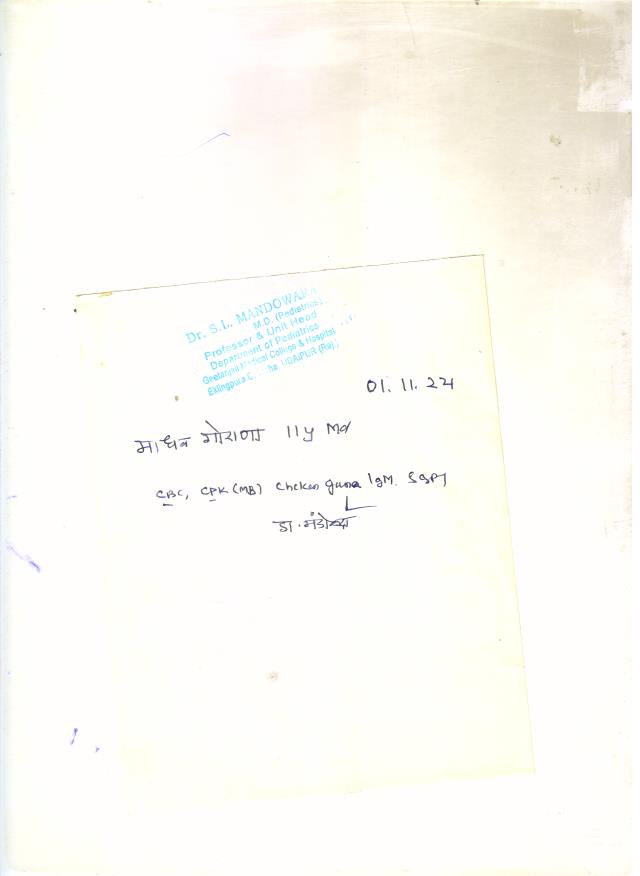 Dr. S.L. MANDOWARA
M.D. (Pediatrics)
Professor & Unit Head
Department of Pediatrics
Geetanjali Medical College & Hospital
Eklingpura UDAIPUR (Raj.)
01.11.24
माधव गोराणा 11y
CBC, CPK (MB) Chcken guna IgM. SGPT
डा.